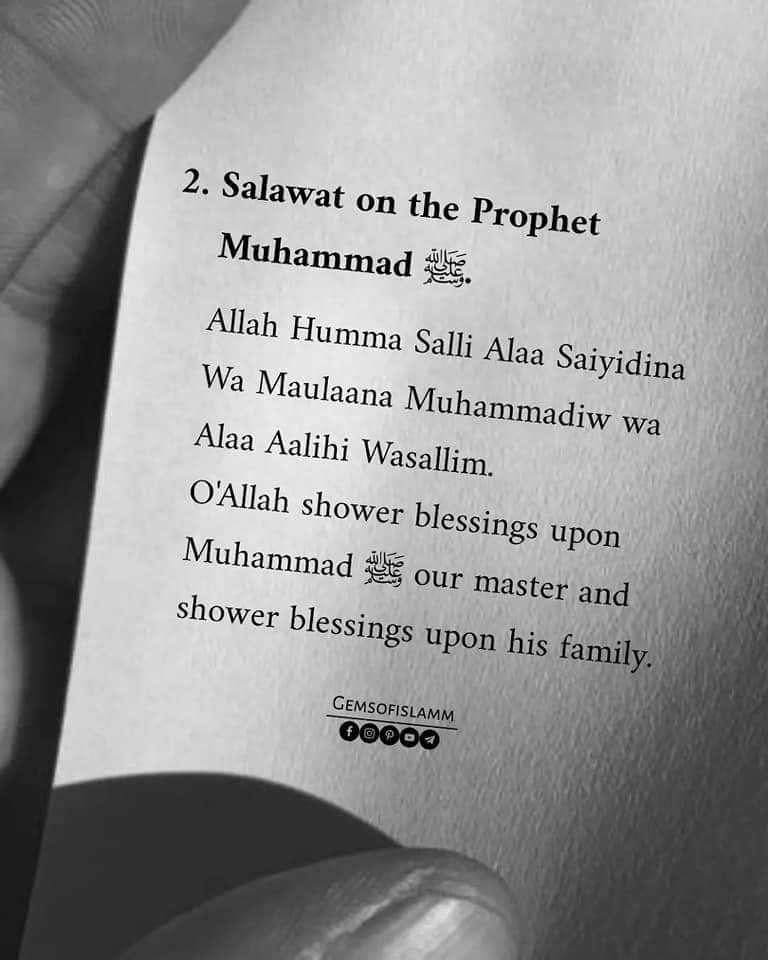 2. Salawat on the Prophet
Muhammad ﷺ.
Allah Humma Salli Alaa Saiyidina
Wa Maulaana Muhammadiw wa
Alaa Aalihi Wasallim.
O'Allah shower blessings upon
Muhammad ﷺ our master and
shower blessings upon his family.
GEMSOFISLAMM